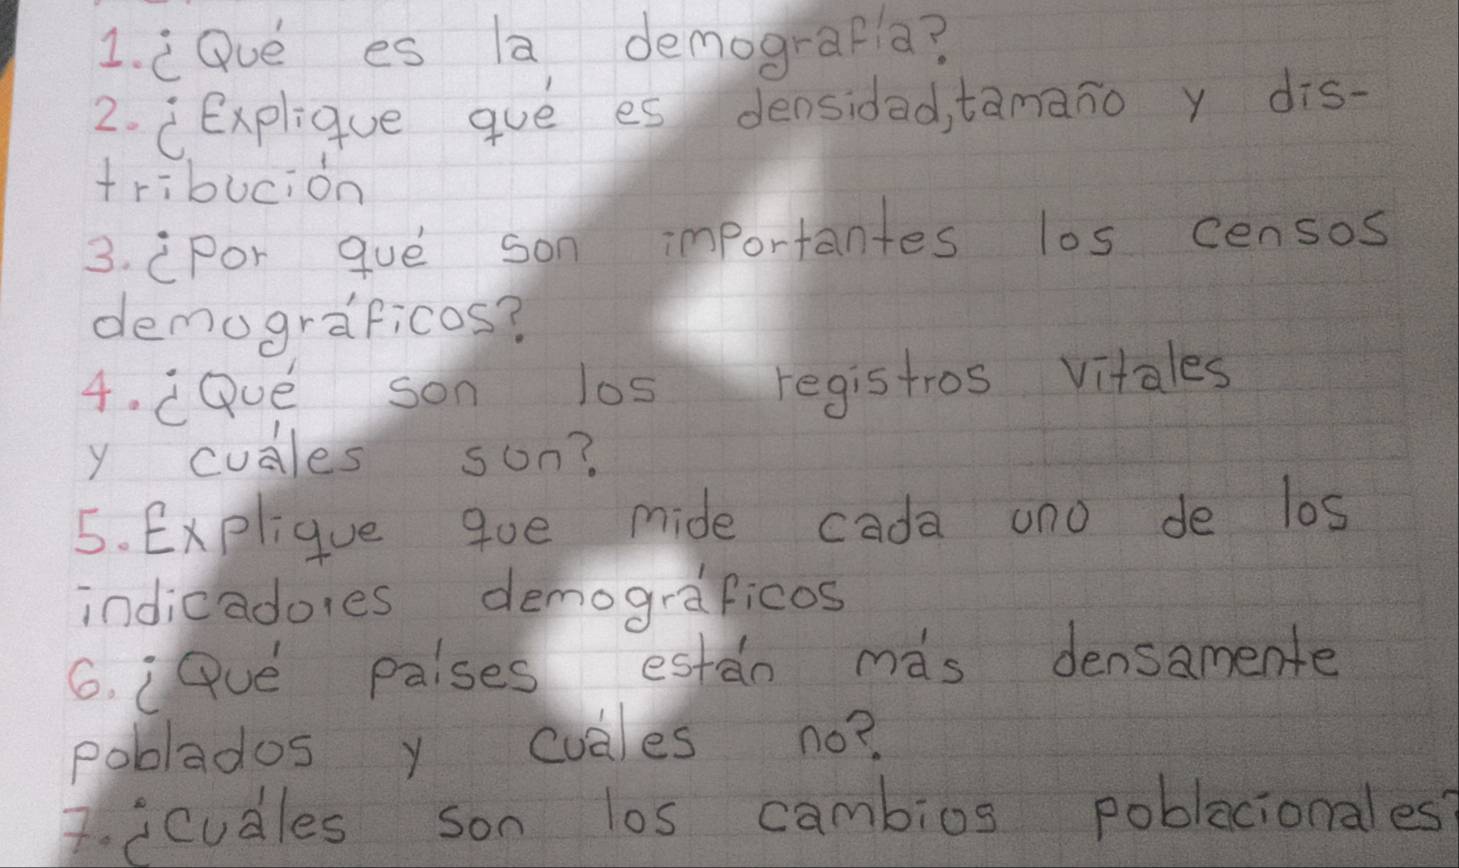 1. ¿Qué es la demografía?
2. ¿Explique qué es densidad, tamaño y dis-
tribución
3. ¿Por qué son importantes los censos
demográficos?
4. ¿Qué son los registros vitales
y cuáles son?
5. Explique que mide cada uno de los
indicadores demográficos
6. ¿Qué países están más densamente
poblados y cuáles no?
7. ¿cuáles son los cambios poblacionales?